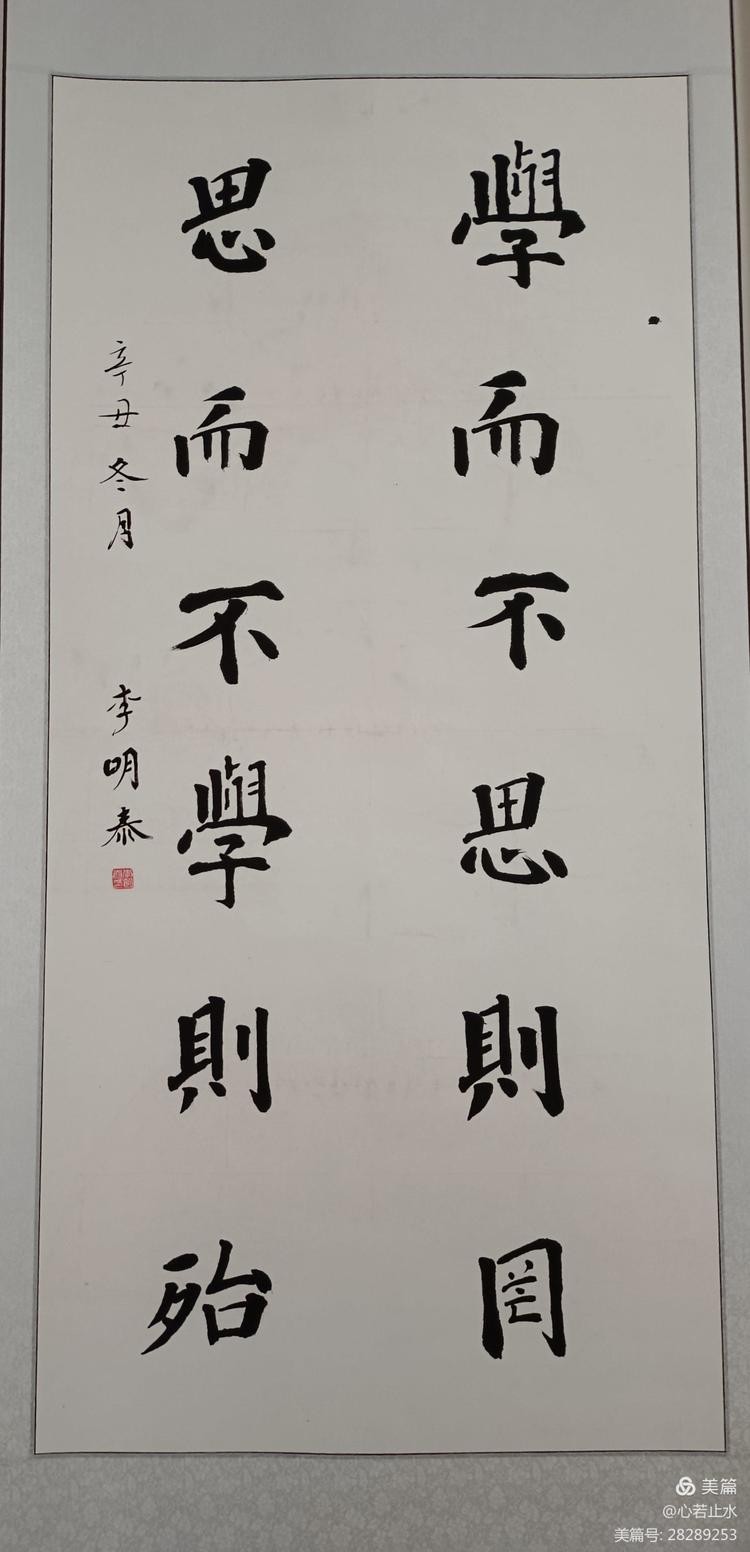 學而不思則罔
思而不學則殆
辛丑冬月 李明泰
美篇
@心若止水
美篇号: 28289253